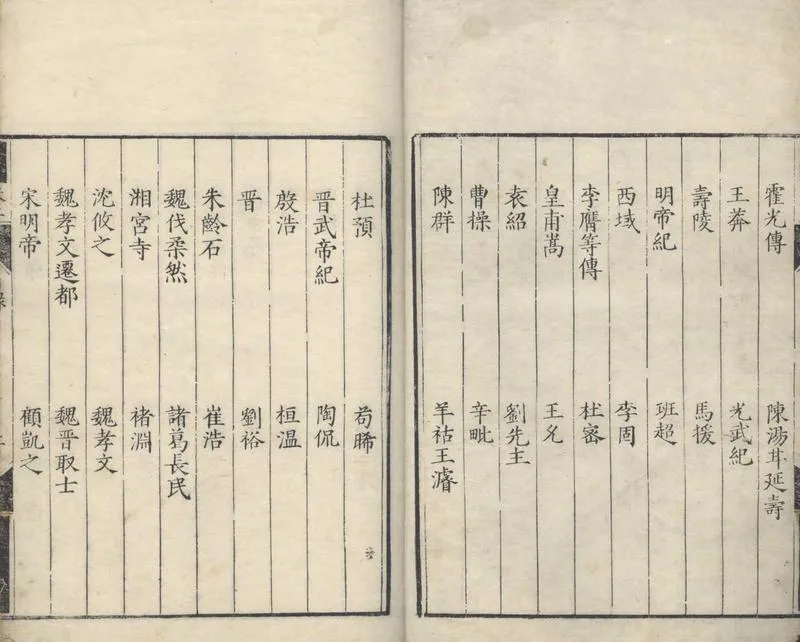 霍光傳 陳湯甘延壽
王莽 光武紀
壽陵 馬援
明帝紀 班超
西域 李固
李膺等傳 杜密
皇甫嵩 王允
袁紹 劉先主
曹操 辛毗
陳群 羊祜王濬
杜預 荀勗
晉武帝紀 陶侃
殷浩 桓温
晉 劉裕
朱齡石 崔浩
魏伐柔然 諸葛長民
湘宮寺 褚淵
沈攸之 魏孝文
魏孝文遷都 魏晉取士
宋明帝 顧凱之